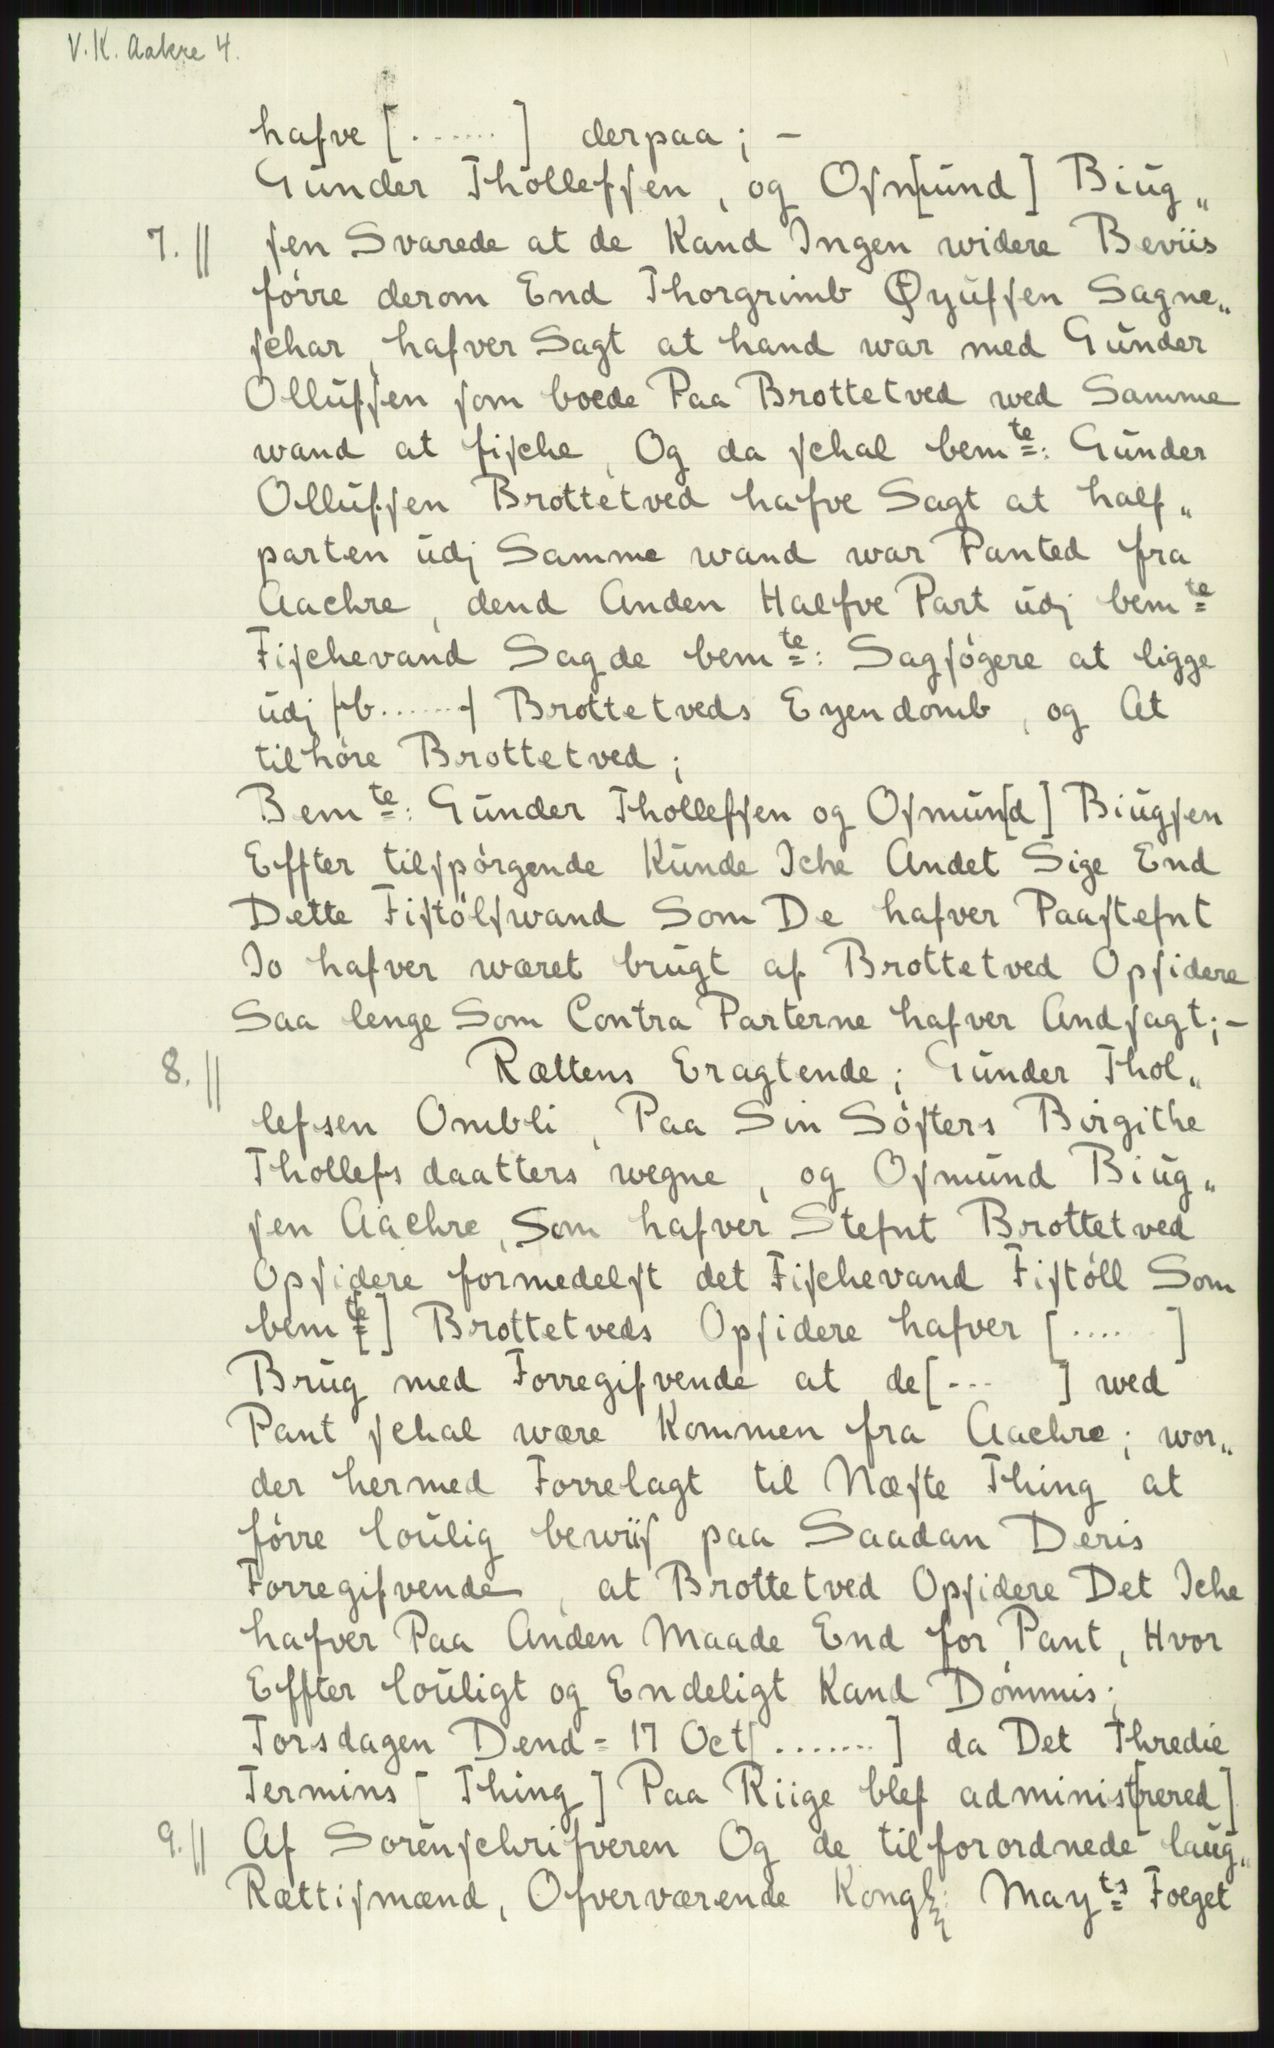 V.K. Aakre 4.
hafve [.......] derpaa; -
Gunder Thollefsen, og Osm[und] Biug„
7. || sen Svarede at de Kand Ingen widere Beviis
förre derom End Thorgrimb Øyufsen Sagne„
schar, hafver Sagt at hand war med Gunder
Ollufsen som boede Paa Brottetved wed Samme
wand at fische, Og da schal bemte: Gunder
Ollufsen Brottetved hafve Sagt at half„
parten udj Samme wand war Panted fra
Aachre, dend Anden Halfve Part udj bemte
Fischevand Sagde bemte: Sagsögere at ligge
udj [b......] Brottetveds Eyendomb, og At
tilhöre Brottetved;
Bemte: Gunder Thollefsen og Osmun[d] Biugsen
Effter tilspörgende Kunde Iche Andet Sige End
Dette Fistölswand Som De hafver Paastefnt
Io hafver wæret brugt af Brottetved Opsidere
Saa lenge Som Contra Parterne hafver Andsagt; -
8. || Rættens Eragtende; Gunder Thol„
lefsen Ombli, Paa Sin Sösters Birgithe
Thollefs daatters wegne, og Osmund Biug„
sen Aachre, Som hafver Stefnt Brottetved
Opsidere formedelst det Fischevand Fistöll Som
bem[te] Brottetveds Opsidere hafver [.... ]
Brug med Forregifvende at de[... ] wed
Pant schal wære Kommen fra Aachre; wor„
der hermed Forrelagt til Næste Thing at
förre loulig bewiis paa Saadan Deris
Forregifvende, at Brottetved Opsidere Det Iche
hafver Paa Anden Maade End for Pant, Hvor
Effter louligt og Endeligt Kand Dömmis;
Torsdagen Dend = 17 Oct[.......] da Det Thredie
Termins [Thing] Paa Riige blef administ[rered]
9. || Af Sorenschrifveren Og de tilforordnede laug„
Rættismænd, Ofverværende Kongl: Mayts Foeget